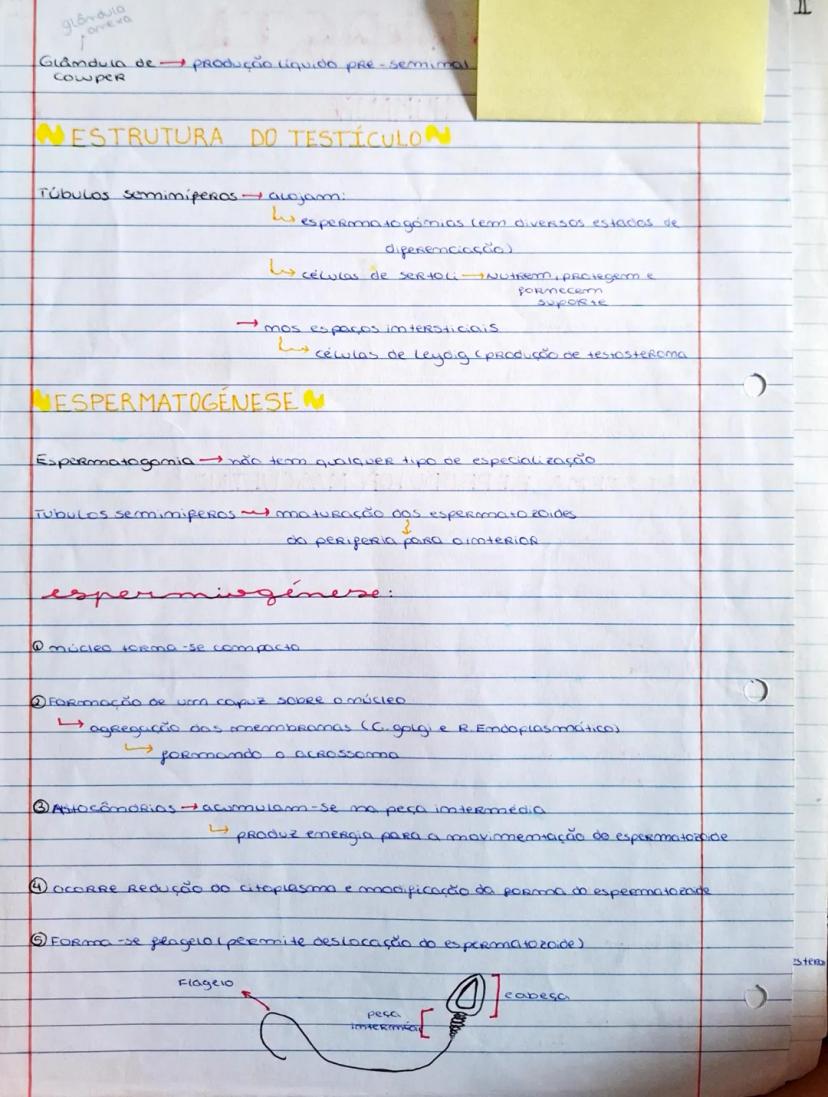 II
glândula
anexa
Glândula de → produção líquido pré-seminal
Cowper
~ESTRUTURA DO TESTÍCULO~
Túbulos seminíferos → alojam:
↳ espermatogónias (em diversos estados de
diferenciação)
↳ células de sertoli → nutrem, protegem e
fornecem
suporte
→ nos espaços intersticiais
↳ células de leydig (produção de testosterona
~ESPERMATOGÉNESE~
Espermatogonia → não tem qualquer tipo de especialização
Tubulos seminiferos → maturação dos espermatozoides
↓
da periferia para o interior
espermiogénese:
① núcleo torna-se compacto
② Formação de um capuz sobre o núcleo
↳ agregação das membranas (C. golgi e R. Endoplasmático)
↳ formando o acrossoma
③ Mitocôndrias → acumulam-se na peça intermédia
↳ produz energia para a movimentação do espermatozoide
④ ocorre redução do citoplasma e modificação da forma do espermatozoide
⑤ Forma-se flagelo (permite deslocação do espermatozoide)
Flagelo
cabeça
peça
intermédia